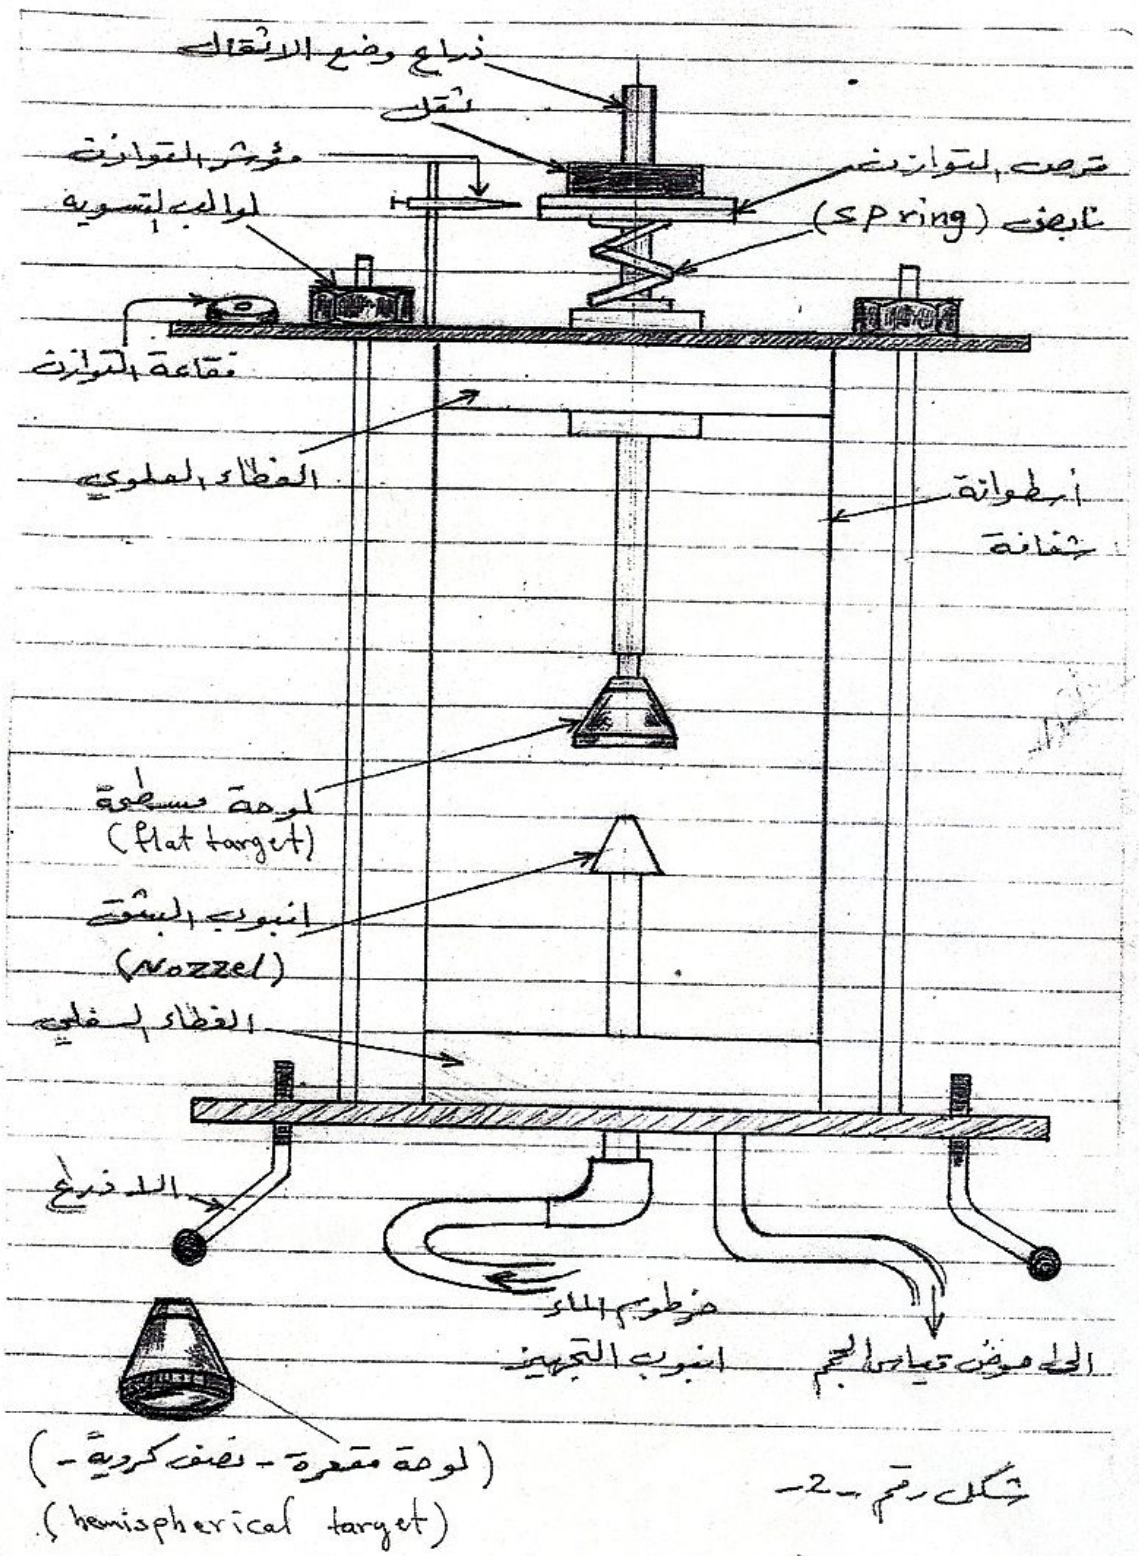 ذراع وضع الاثقال
ثقل
مؤشر التوازن
قرص التوازن
لوالب التسوية
نابض (spring)
فقاعة التوازن
الغطاء العلوي
أسطوانة
شفافة
لوحة مسطحة
(flat target)
انبوب البثق
(Nozzel)
الغطاء السفلي
الاذرع
خرطوم الماء
انبوب التجهيز
الى حوض قياس الحجم
(لوحة مقعرة - نصف كروية -)
(hemispherical target)
شكل رقم -2-